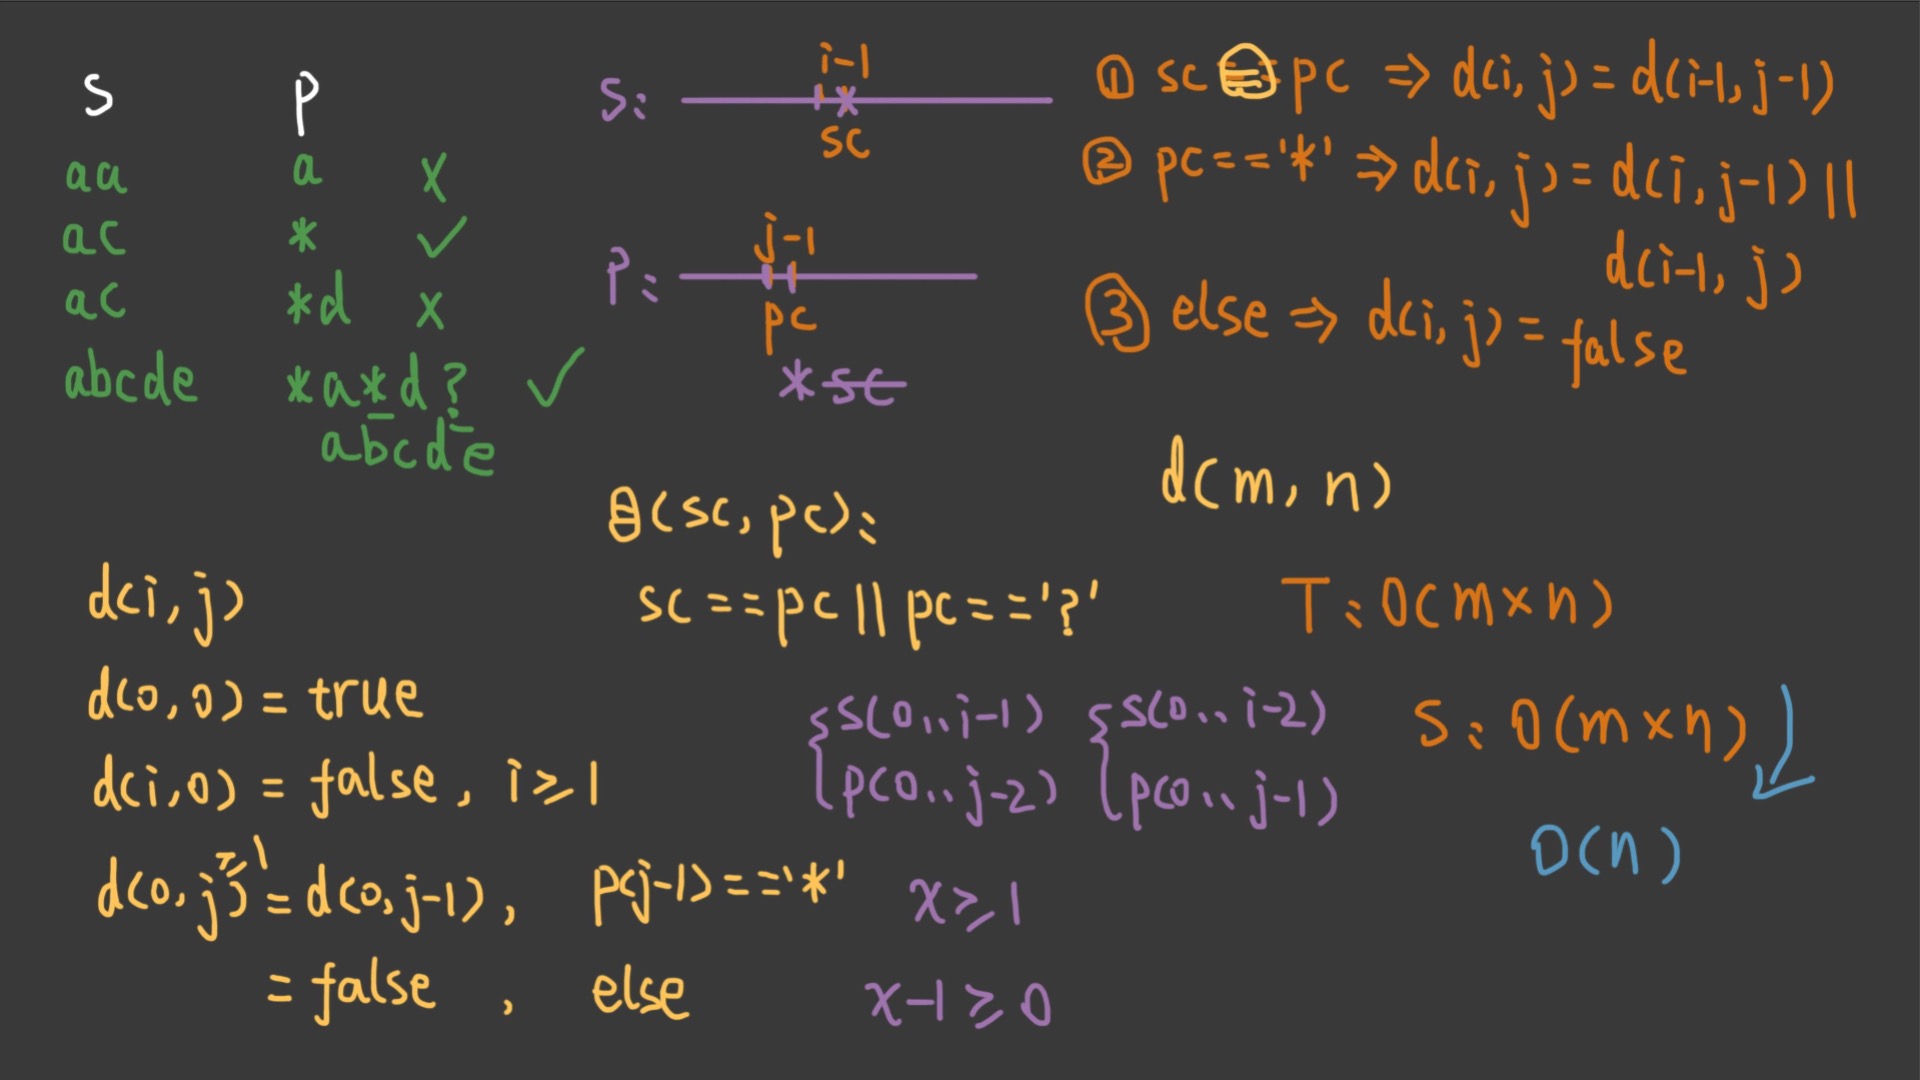 s p
aa a x
ac * ✓
ac *d x
abcde *a*d? ✓
abcde
s:
i-1
sc
p:
j-1
pc
*sc
① sc == pc ⇒ d(i, j) = d(i-1, j-1)
② pc == '*' ⇒ d(i, j) = d(i, j-1) ||
d(i-1, j)
③ else ⇒ d(i, j) = false
d(m, n)
(sc, pc):
sc == pc || pc == '?'
T: O(m×n)
S: O(m×n)
O(n)
d(i, j)
d(0, 0) = true
d(i, 0) = false, i ≥ 1
d(0, j) = d(0, j-1), p(j-1) == '*'
≥1
= false , else
{ s(0..i-1) { s(0..i-2)
p(0..j-2) p(0..j-1)
x ≥ 1
x-1 ≥ 0